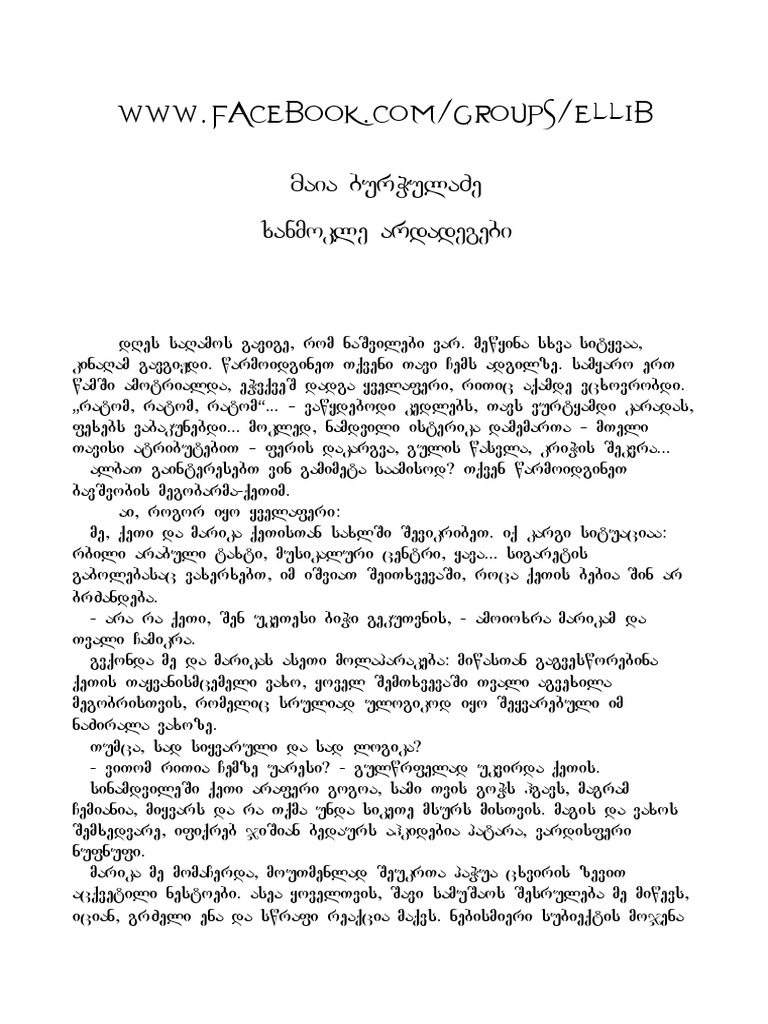 www.facebook.com/groups/ellib
მაია ბურჭულაძე
ხანმოკლე არდადეგები
დღეს საღამოს გავიგე, რომ ნაშვილები ვარ. მეწყინა სხვა სიტყვაა,
კინაღამ გავგიჟდი. წარმოიდგინეთ თქვენი თავი ჩემს ადგილზე. სამყარო ერთ
წამში ამოტრიალდა, ეჭვქვეშ დადგა ყველაფერი, რითიც აქამდე ვცხოვრობდი.
„რატომ, რატომ, რატომ“... – ვაწყდებოდი კედლებს, თავს ვურტყამდი კარადას,
ფეხებს ვაბაკუნებდი... მოკლედ, ნამდვილი ისტერიკა დამემართა – მთელი
თავისი ატრიბუტებით – ფერის დაკარგვა, გულის წასვლა, კრიჭის შეკვრა...
ალბათ გაინტერესებთ ვინ გამიმეტა საამისოდ? თქვენ წარმოიდგინეთ
ბავშვობის მეგობარმა-ქეთიმ.
აი, როგორ იყო ყველაფერი:
მე, ქეთი და მარიკა ქეთისთან სახლში შევიკრიბეთ. იქ კარგი სიტუაციაა:
რბილი არაბული ტახტი, მუსიკალური ცენტრი, ყავა... სიგარეტის
გაბოლებასაც ვახერხებთ, იმ იშვიათ შეითხვევაში, როცა ქეთის ბებია შინ არ
ბრძანდება.
- არა რა ქეთი, შენ უკეთესი ბიჭი გეკუთვნის, - ამოიოხრა მარიკამ და
თვალი ჩამიკრა.
გვქონდა მე და მარიკას ასეთი მოლაპარაკება: მიწასთან გაგვესწორებინა
ქეთის თაყვანისმცემელი ვახო, ყოველ შემთხვევაში თვალი აგვეხილა
მეგობრისთვის, რომელიც სრულიად ულოგიკოდ იყო შეყვარებული იმ
ნაძირალა ვახოზე.
თუმცა, სად სიყვარული და სად ლოგიკა?
- ვითომ რითია ჩემზე უარესი? - გულწრფელად უკვირდა ქეთის.
სინამდვილეში ქეთი არაფერი გოგოა, სამი თვის გოჭს ჰგავს, მაგრამ
ჩემიანია, მიყვარს და რა თქმა უნდა სიკეთე მსურს მისთვის. მაგის და ვახოს
შემხედვარე, იფიქრებ ჯიშიან ბედაურს აჰკიდებია პატარა, ვარდისფერი
ნუფნუფი.
მარიკა მე მომაჩერდა, მოუთმენლად შეუკრთა პაჭუა ცხვირის ზევით
აცქვეტილი ნესტოები. ასეა ყოველთვის, შავი სამუშაოს შესრულება მე მიწევს,
იციან, გრძელი ენა და სწრაფი რეაქცია მაქვს. ნებისმიერი სუბიექტის მოჯენა